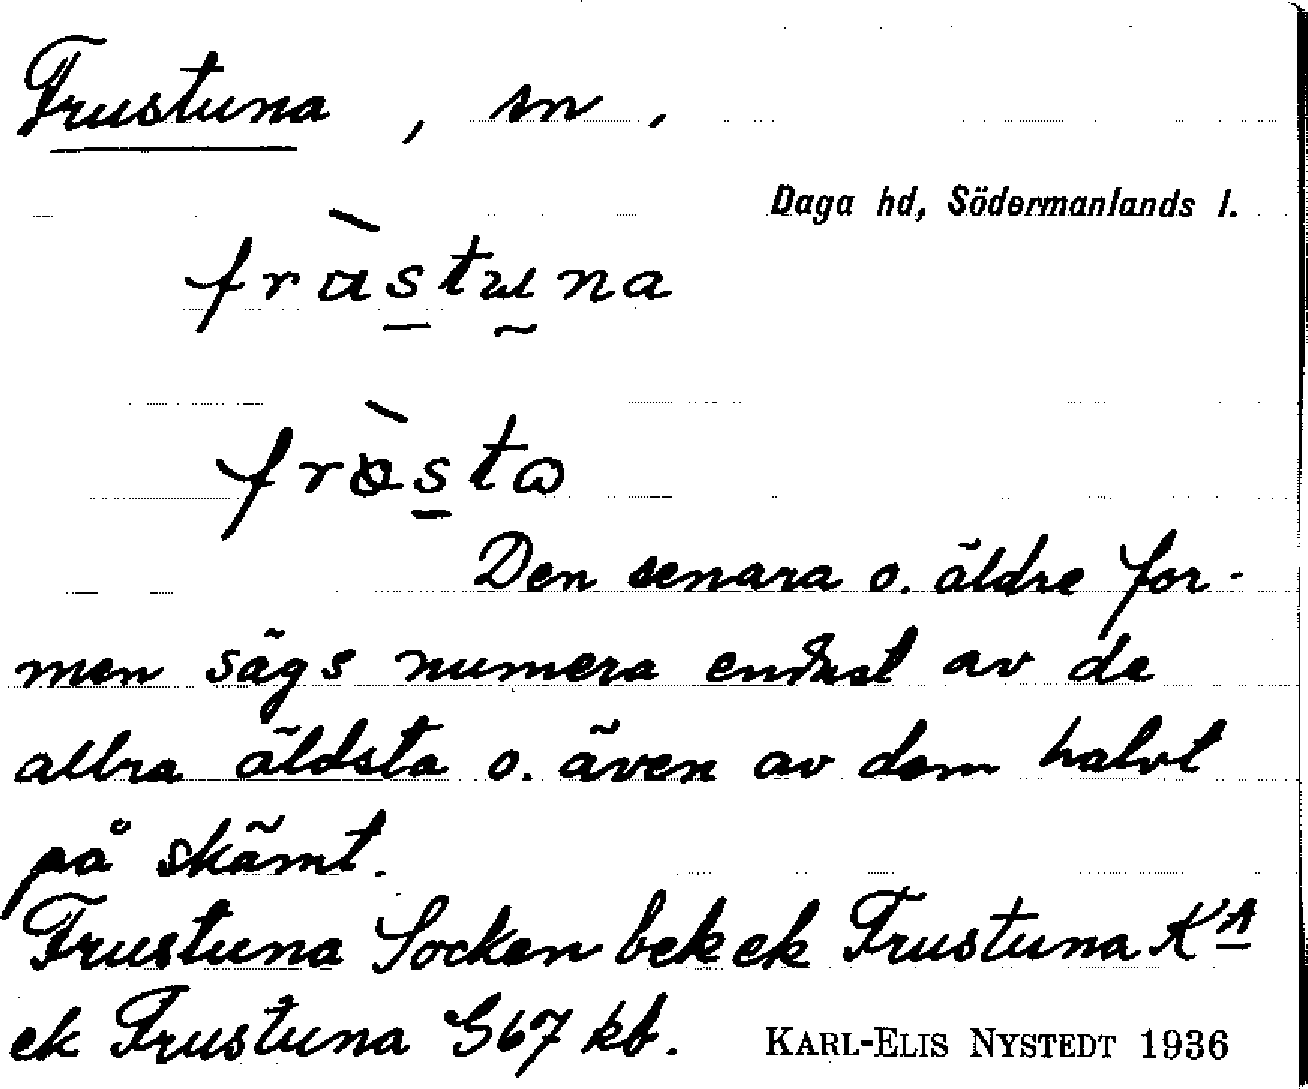 Frustuna, sn,
Daga hd, Södermanlands l.
fràstuna
fròsta
Den senara o. äldre for-
men sägs numera endast av de
allra äldsta o. även av dem halvt
på skämt.
Frustuna Socken bek ek Frustuna KA
ek Frustuna G67 kb. KARL-ELIS NYSTEDT 1936